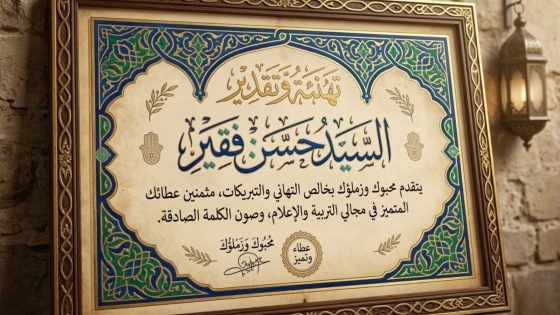 تهنئة وتقدير
السَّيِّد حُسَّن فَقِير
يتقدم محبوك وزملؤك بخالص التهاني والتبريكات، مثمنين عطائك
المتميز في مجالي التربية والإعلام، وصون الكلمة الصادقة.
مُحبُوكَ وَزَملُؤكَ
عطاء
وتميز